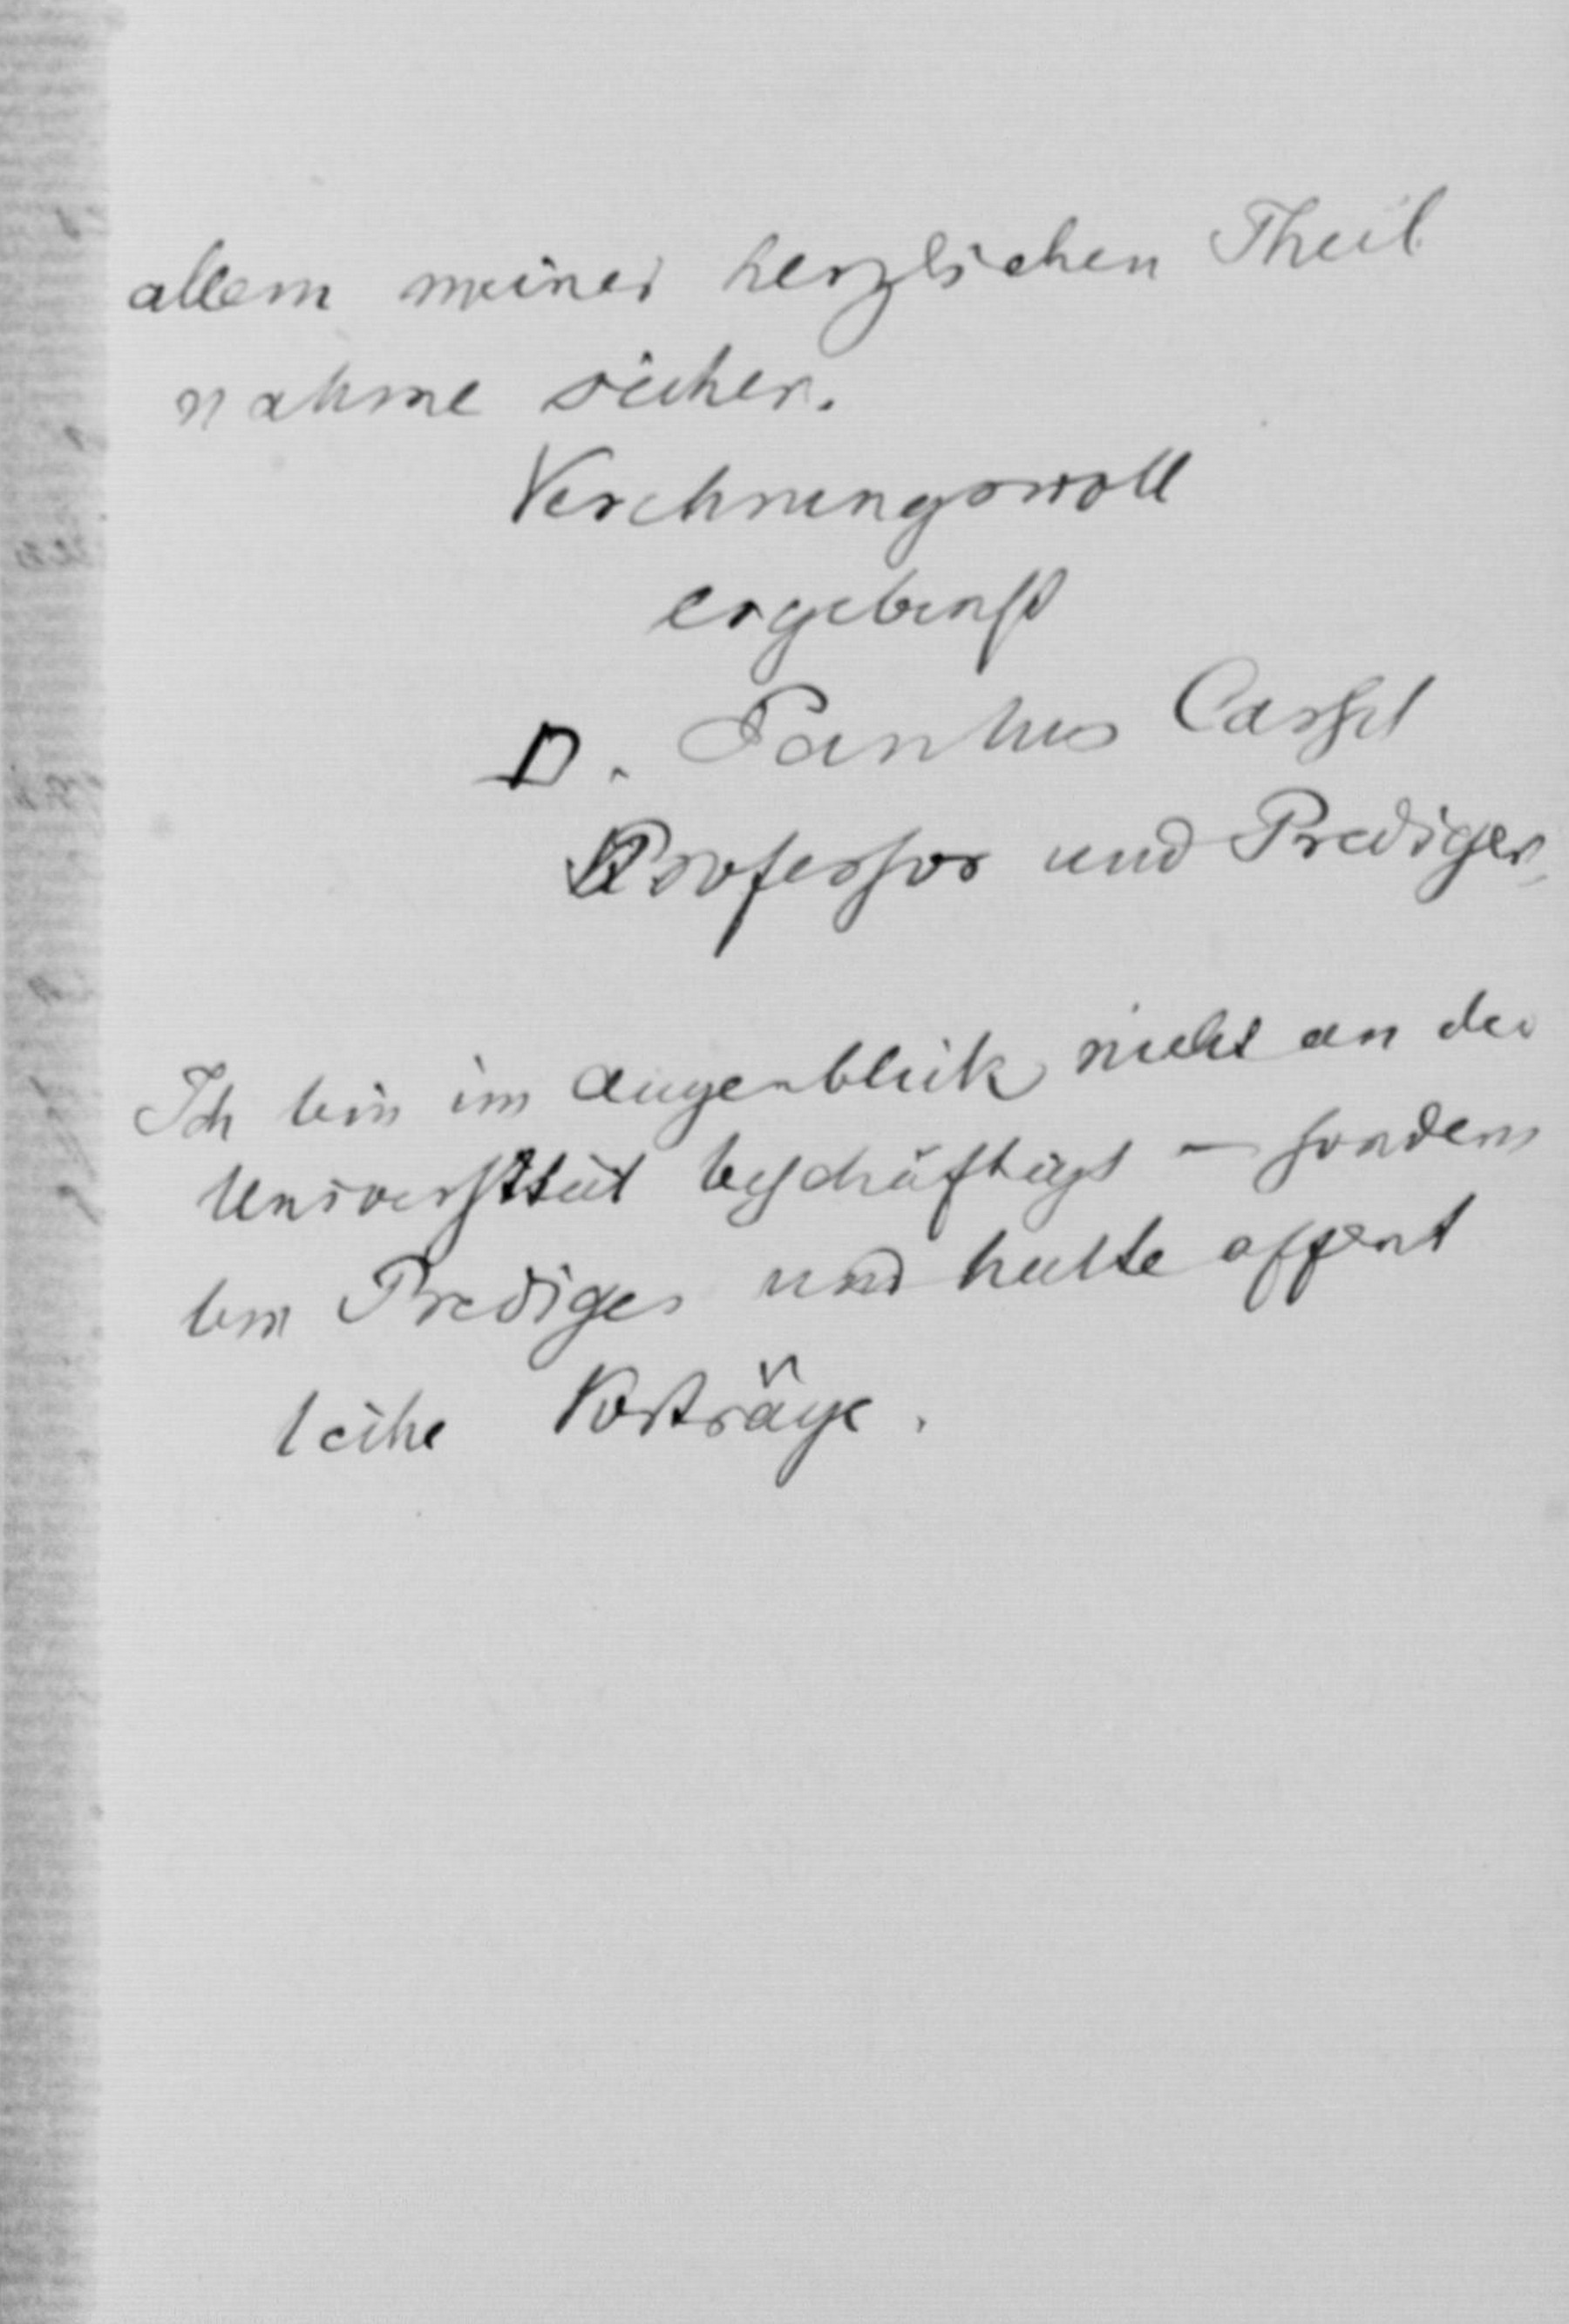 allem meiner herzlichen Theil
nahme sicher.
Verehrungsvoll
ergebenst
D. Paulus Cassel
Professor und Prediger
Ich bin im Augenblick nicht an der
Universität beschäftigt – sondern
bin Prediger und halte offent
liche Vorträge.